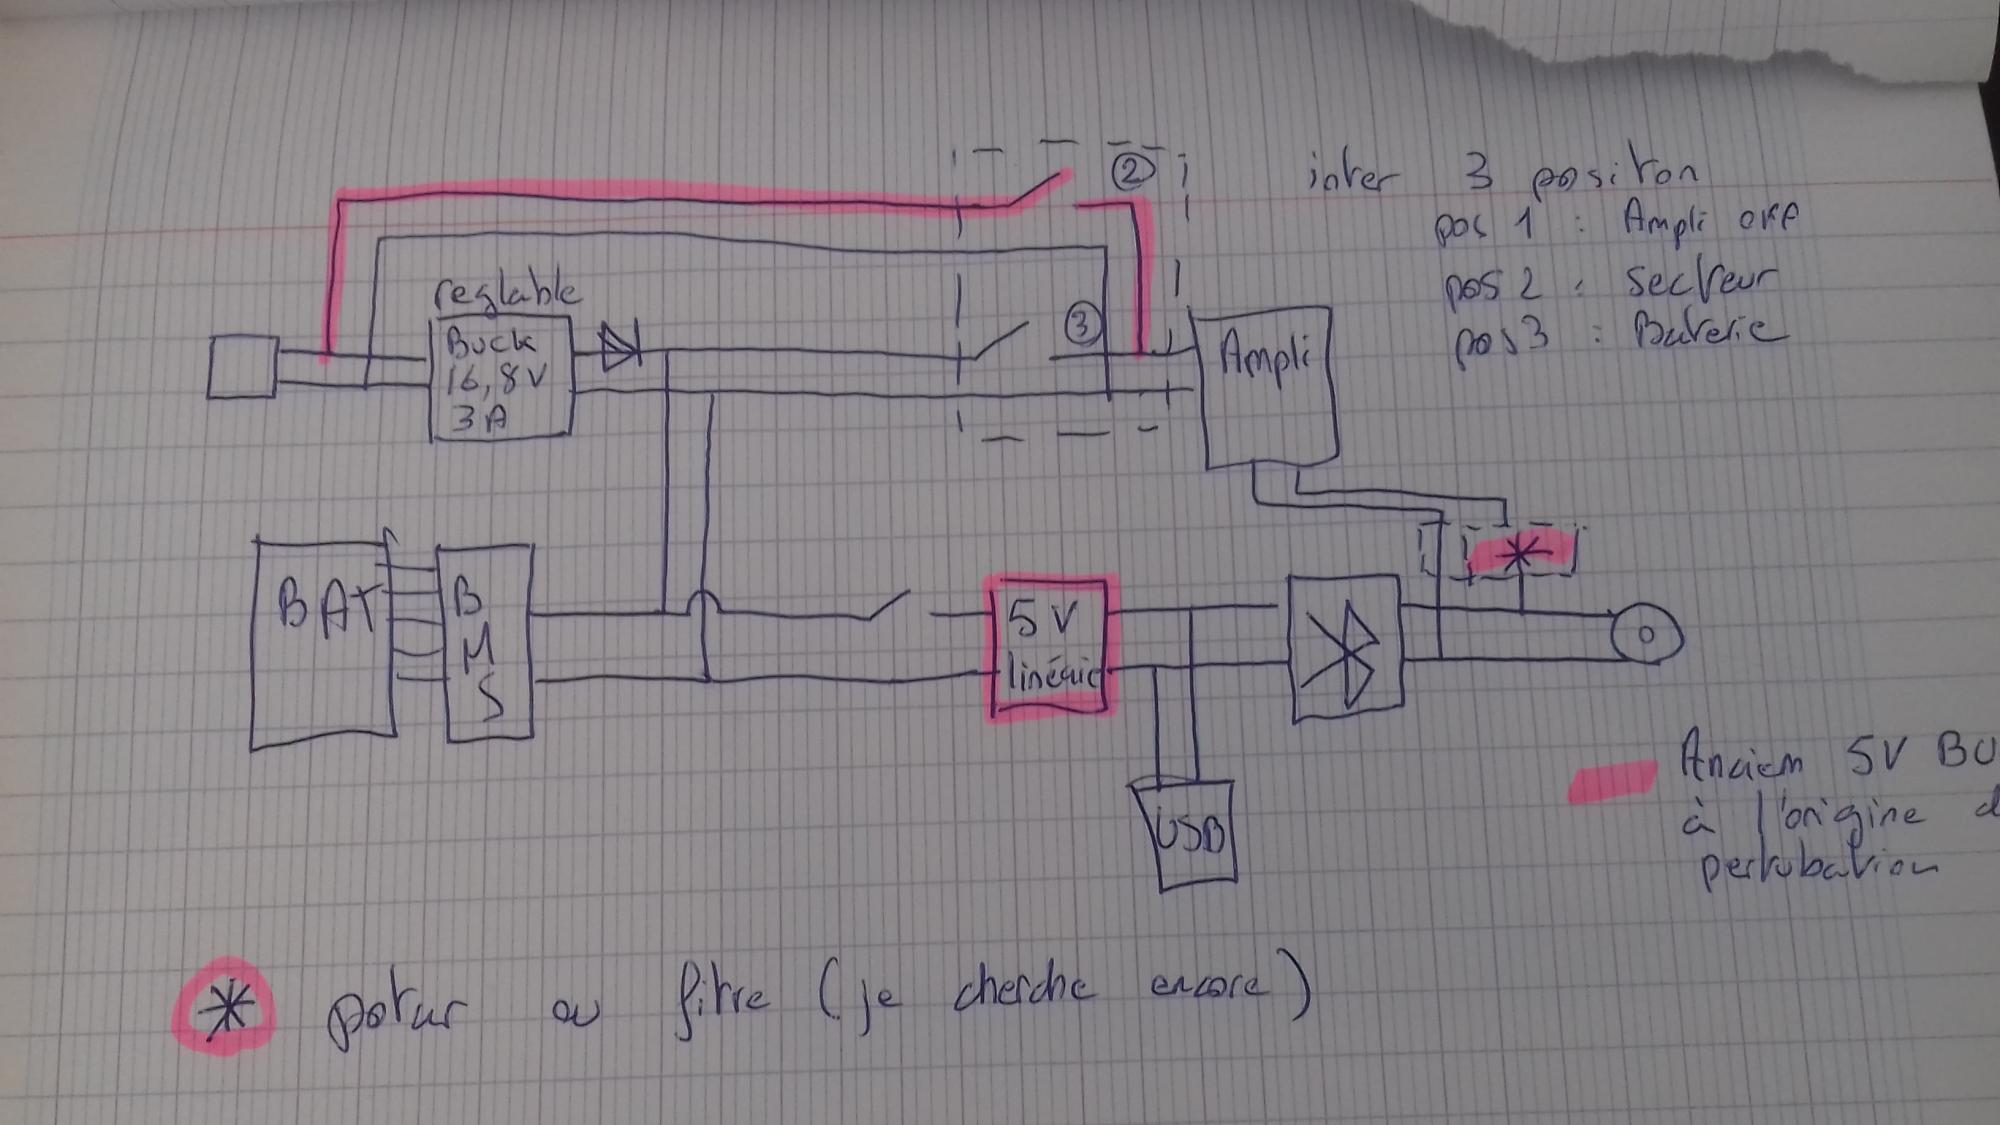 ②
inter 3 position
pos 1 : Ampli OFF
pos 2 : Secteur
pos 3 : Baterie
reglable
Buck
16,8V
3A
③
Ampli
BAT
B
M
S
5V
linéaie
USB
Anciem 5V BU
à l'origine d
pertubation
* potur ou fitre (je cherche encore)